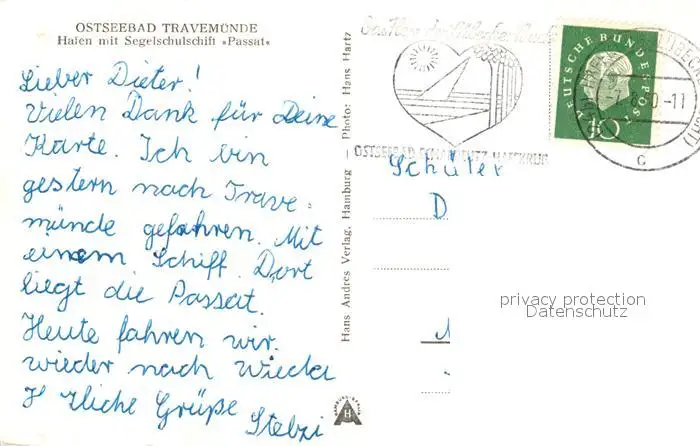 OSTSEEBAD TRAVEMÜNDE
Hafen mit Segelschulschiff »Passat«
Lieber Dieter!
Vielen Dank für Deine
Karte. Ich bin
gestern nach Trave=
münde gefahren. Mit
einem Schiff. Dort
liegt die Passat.
Heute fahren wir
wieder nach
H zliche Grüße
Stebzi
Hans Andres Verlag, Hamburg — Photo: Hans Hartz
Das Herz der Lübecker Bucht
OSTSEEBAD SCHARBEUTZ-HAFFKRUG
DEUTSCHE BUNDESPOST
10
-11
c
Schüler
D
privacy protection
Datenschutz